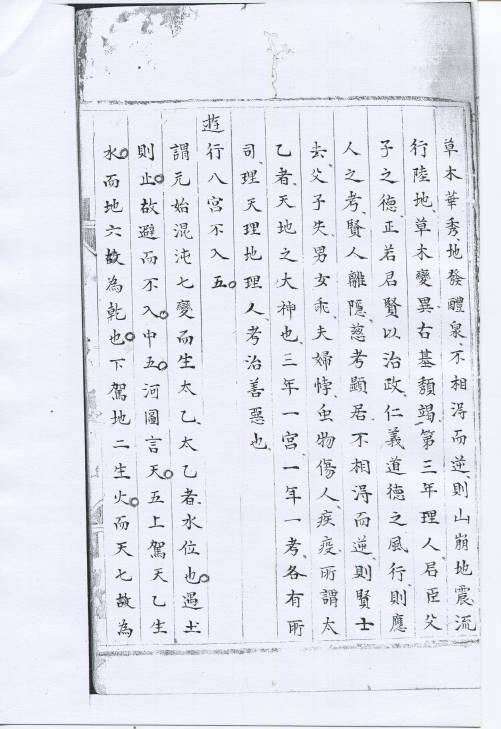 草木華秀地發醴泉不相淂而逆、則山崩地震流
行陸地、草木變異右基頽竭、第三年理人、君臣父
子之德正若君賢以治政、仁義道德之風行、則應
人之考、賢人離隱慈考顯居、不相淂而逆、則賢士
去、父子失、男女乖、夫婦悖、虫物傷人、疾疫、所謂太
乙者、天地之大神也、三年一宮、一年一考、各有所
司、理天理地理人、考治善惡也、
遊行八宮不入五。
謂元始混沌七變而生太乙、太乙者、水位也。遇土
則止。故避而不入。中五。河圖言天。五上駕天乙生
水。而地六故為乾也。下駕地二生火。而天七故為